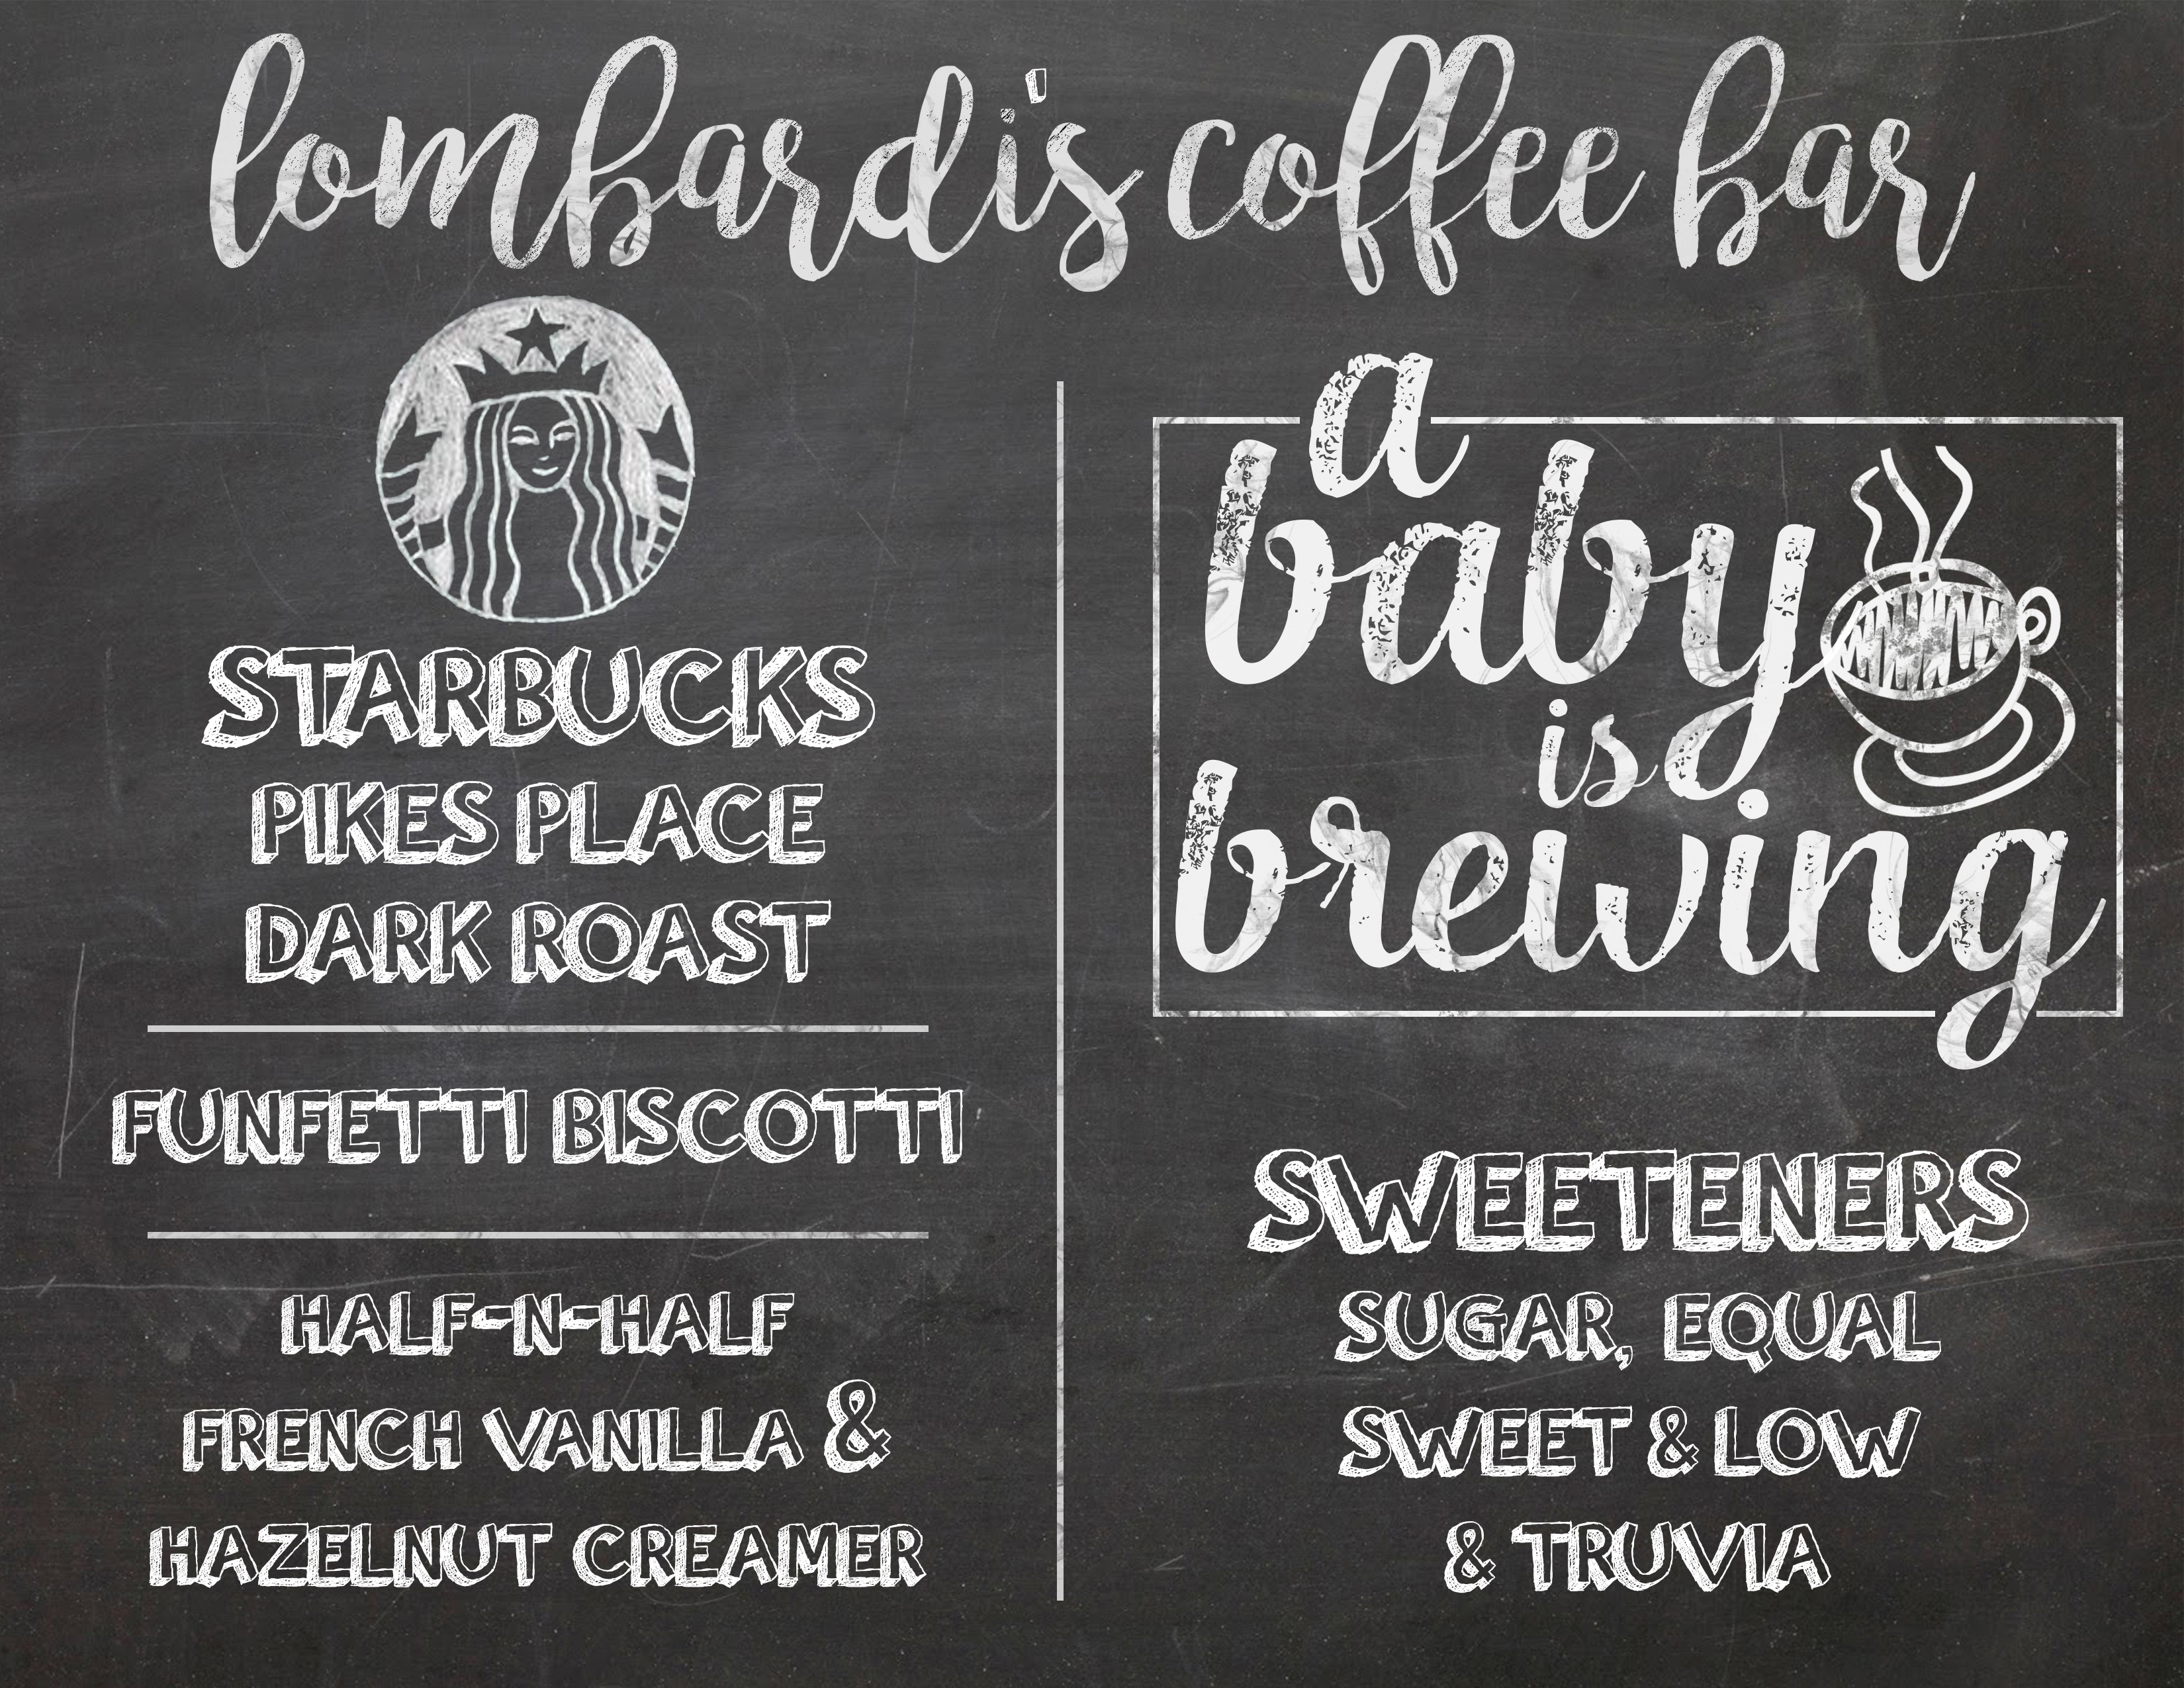 lombardi's coffee bar
STARBUCKS
PIKES PLACE
DARK ROAST
FUNFETTI BISCOTTI
HALF-N-HALF
FRENCH VANILLA &
HAZELNUT CREAMER
a
baby
is
brewing
SWEETENERS
SUGAR, EQUAL
SWEET & LOW
& TRUVIA